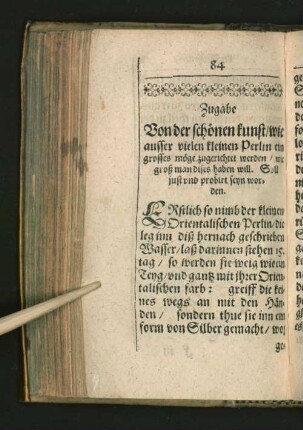 84
Zugabe
Von der schönen kunst/ wie
ausser vielen kleinen Perlin ein
grosses möge zugerichtet werden /
groß man dises haben will. Soll
just und probirt seyn wor-
den.
ERstlich so nimb der kleinen
Orientalischen Perlin/ die
leg inn diß hernach geschrieben
Wasser/ laß darinnen stehen 15.
tag / so werden sie weig wie ein
Teyg/ vnd gantz mit ihrer Orien
talischen farb: greiff die kei
nes wegs an mit den Hän-
den / sondern thue sie inn ein
form von Silber gemacht/